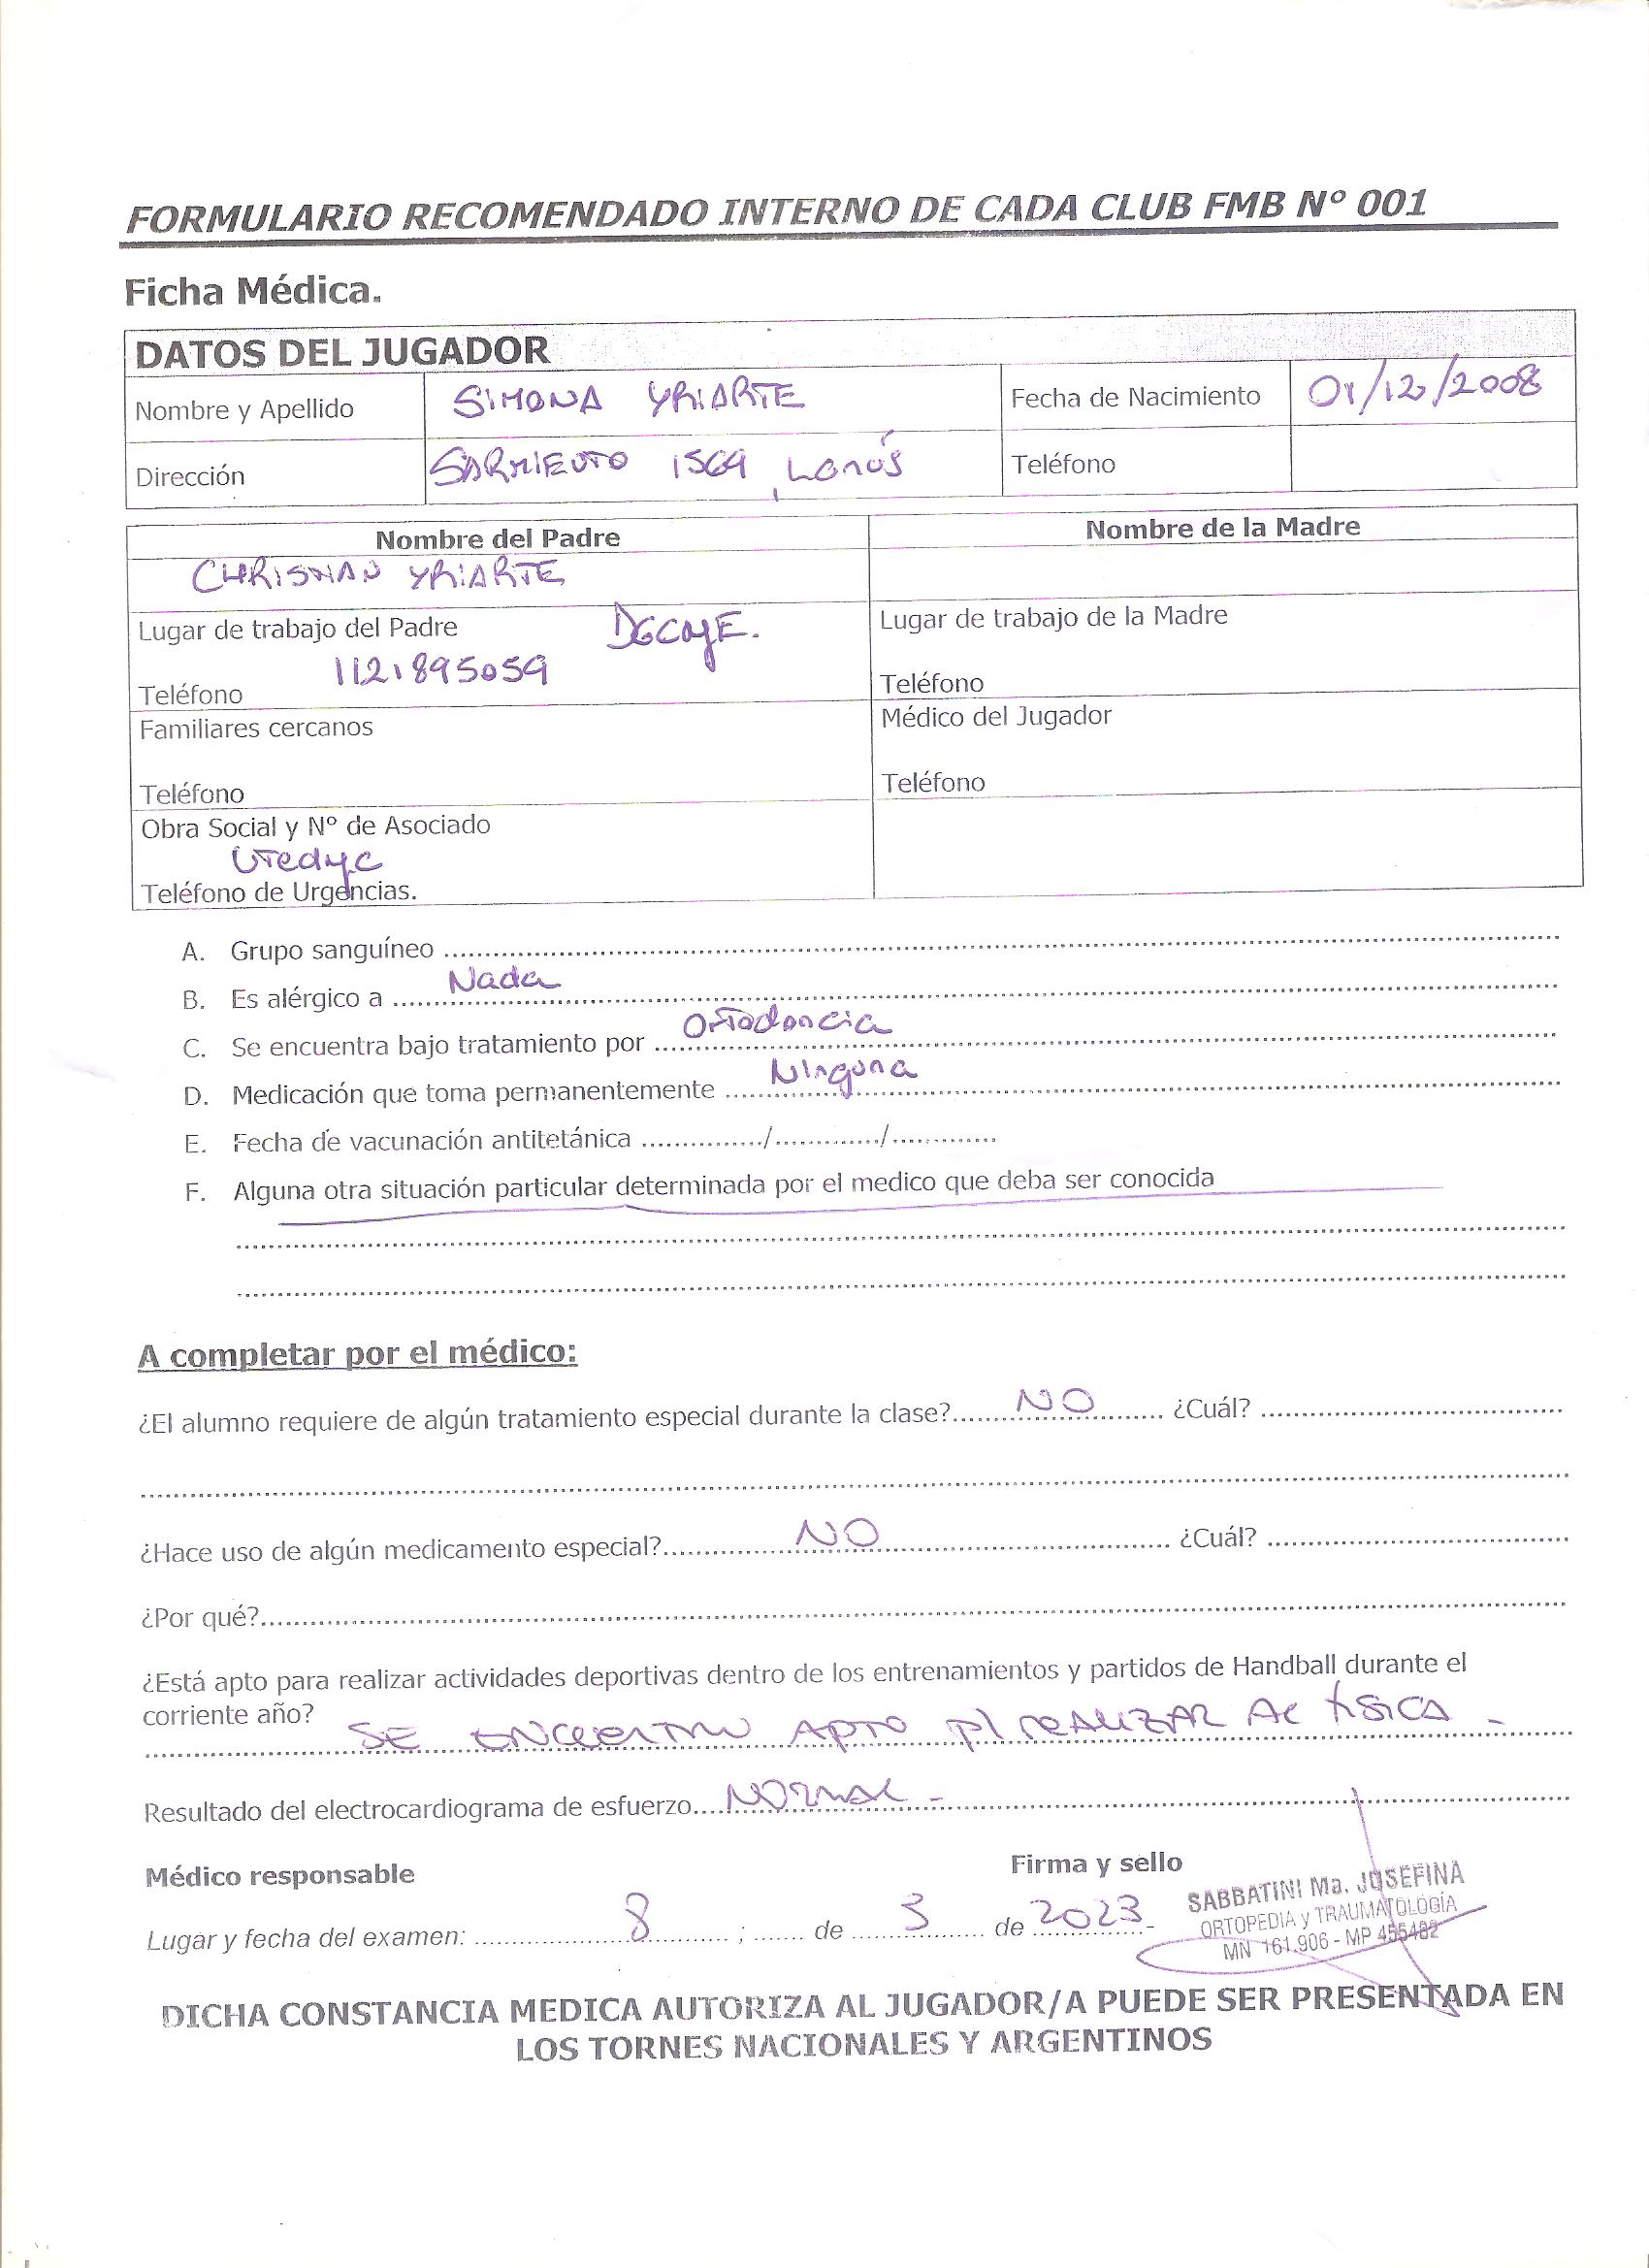 FORMULARIO RECOMENDADO INTERNO DE CADA CLUB FMB N° 001
Ficha Médica.
DATOS DEL JUGADOR
Nombre y Apellido SIMONA YRIARTE Fecha de Nacimiento 01/12/2008
Dirección SARMIENTO 1569, Lanús Teléfono
Nombre del Padre Nombre de la Madre
CHRISTIAN YRIARTE
Lugar de trabajo del Padre Lugar de trabajo de la Madre
Teléfono 1121895059 Teléfono
Familiares cercanos Médico del Jugador
Teléfono Teléfono
Obra Social y N° de Asociado
Utedyc
Teléfono de Urgencias.
A. Grupo sanguíneo
B. Es alérgico a Nada
C. Se encuentra bajo tratamiento por Ortodoncia
D. Medicación que toma permanentemente Ninguna
E. Fecha de vacunación antitetánica ............../............../..............
F. Alguna otra situación particular determinada por el medico que deba ser conocida
A completar por el médico:
¿El alumno requiere de algún tratamiento especial durante la clase? NO ¿Cuál?
¿Hace uso de algún medicamento especial? NO ¿Cuál?
¿Por qué?
¿Está apto para realizar actividades deportivas dentro de los entrenamientos y partidos de Handball durante el
corriente año?
SE ENCUENTRA APTO p/ REALIZAR AC FISICA -
Resultado del electrocardiograma de esfuerzo NORMAL -
Médico responsable Firma y sello
Lugar y fecha del examen: 8 ; de 3 de 2023
SABBATINI Ma. JOSEFINA
ORTOPEDIA y TRAUMATOLOGÍA
MN 161.906 - MP 455482
DICHA CONSTANCIA MEDICA AUTORIZA AL JUGADOR/A PUEDE SER PRESENTADA EN
LOS TORNES NACIONALES Y ARGENTINOS